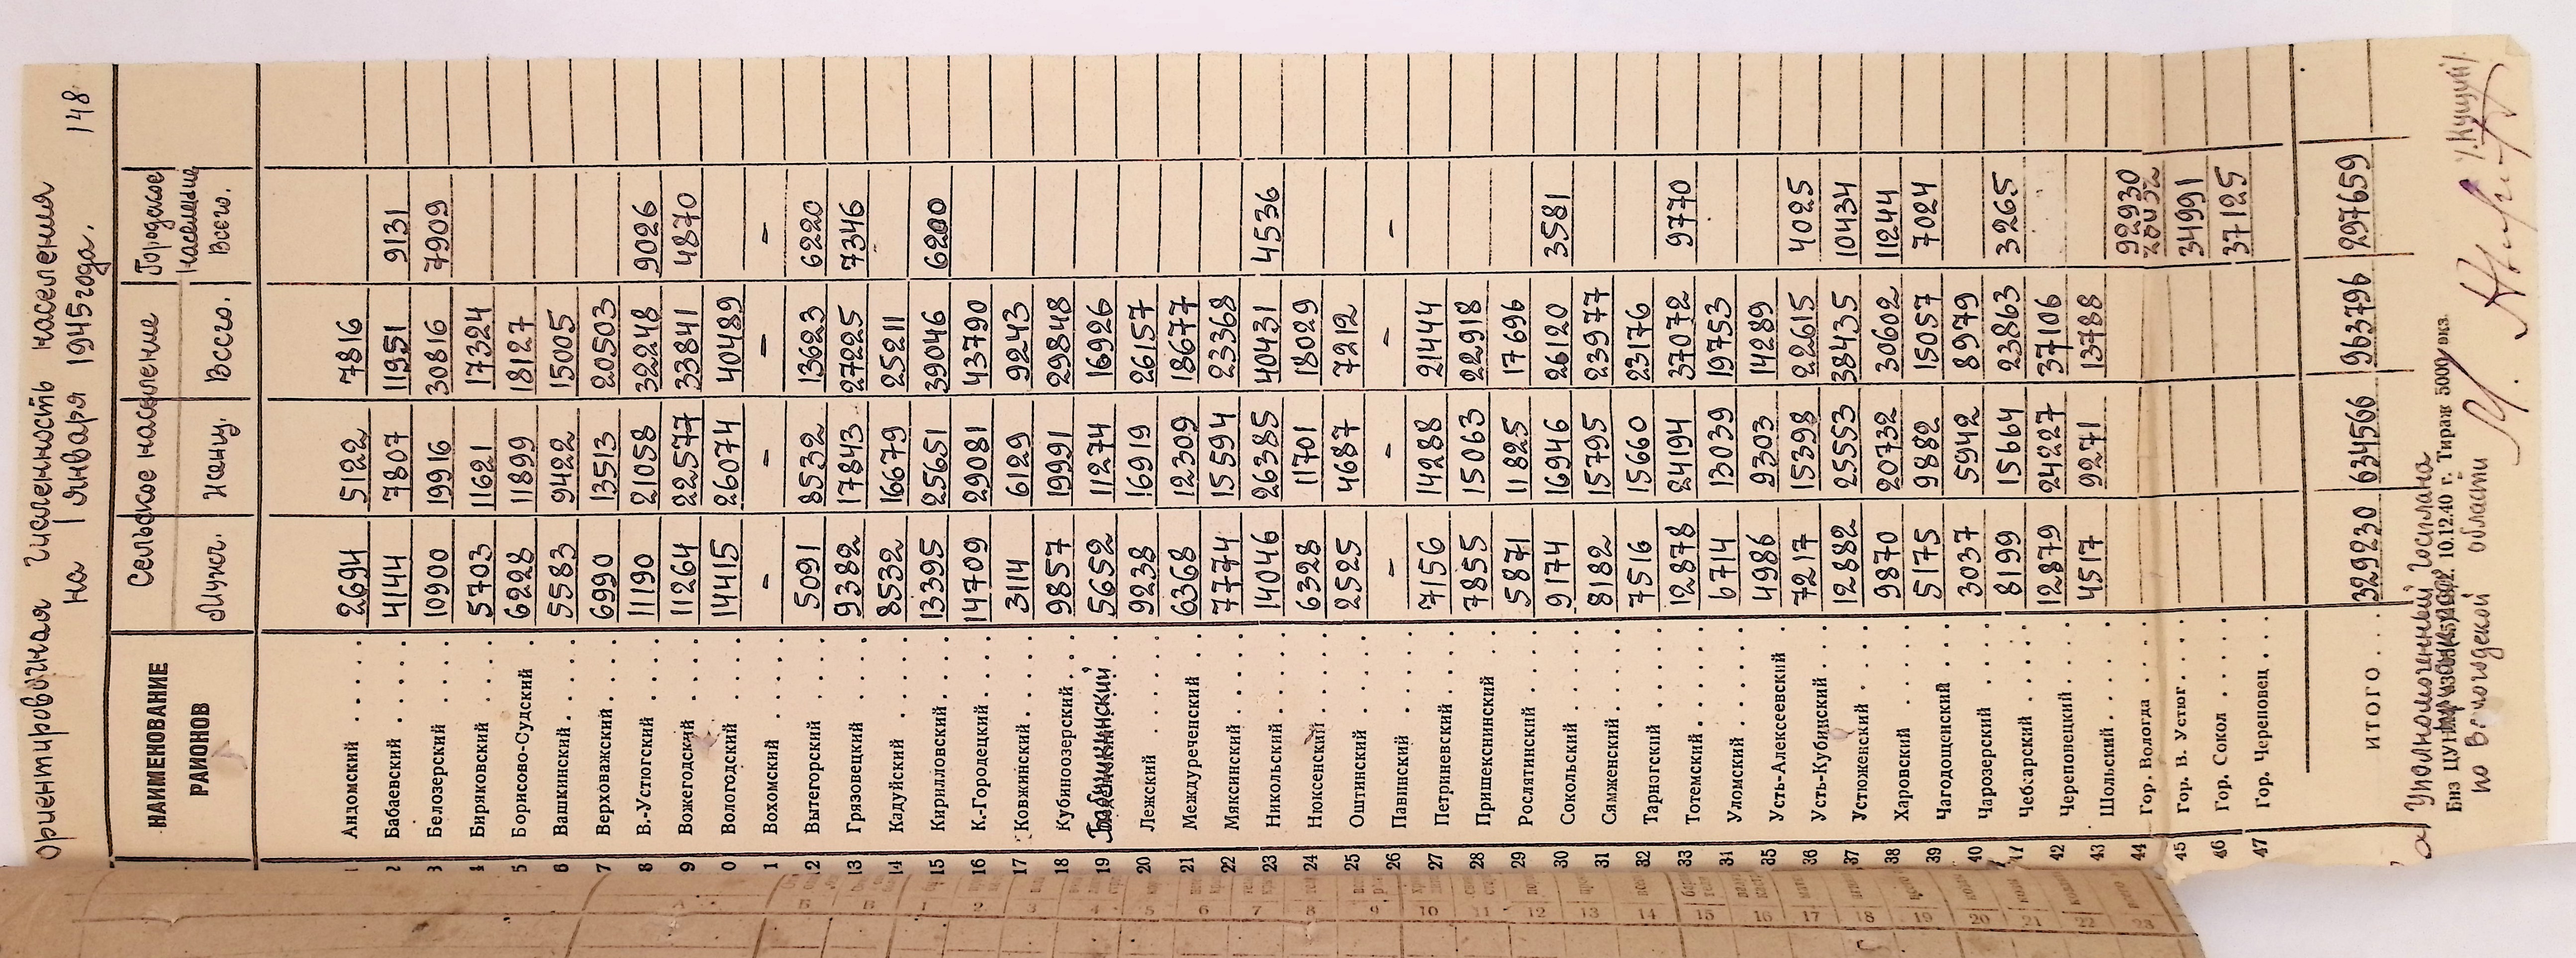 Ориентировочная численность населения
на 1 января 1945 года.
148
НАИМЕНОВАНИЕ РАЙОНОВ
Сельское население
Городское население
Мужч. Женщ. Всего. Всего.
1 Андомский 2694 5122 7816
2 Бабаевский 4144 7807 11951 9131
3 Белозерский 10900 19916 30816 7909
4 Биряковский 5703 11621 17324
5 Борисово-Судский 6228 11899 18127
6 Вашкинский 5583 9422 15005
7 Верховажский 6990 13513 20503
8 В.-Устюгский 11190 21058 32248 9026
9 Вожегодский 11264 22577 33841 4870
0 Вологодский 14415 26074 40489
1 Вохомский - - - -
12 Вытегорский 5091 8532 13623 6220
13 Грязовецкий 9382 17843 27225 7346
14 Кадуйский 8532 16679 25211
15 Кирилловский 13395 25651 39046 6200
16 К.-Городецкий 14709 29081 43790
17 Ковжинский 3114 6129 9243
18 Кубиноозерский 9857 19991 29848
19 Бабушкинский 5652 11274 16926
20 Лежский 9238 16919 26157
21 Междуреченский 6368 12309 18677
22 Максинский 7774 15594 23368
23 Никольский 14046 26385 40431 4536
24 Нюксенский 6328 11701 18029
25 Оштинский 2525 4687 7212
26 Павинский - - - -
27 Петриневский 7156 14288 21444
28 Пришекснинский 7855 15063 22918
29 Рослятинский 5871 11825 17696
30 Сокольский 9174 16946 26120 3581
31 Сямженский 8182 15795 23977
32 Тарногский 7516 15660 23176
33 Тотемский 12878 24194 37072 9770
34 Уломский 6714 13039 19753
35 Усть-Алексеевский 4986 9303 14289
36 Усть-Кубинский 7217 15398 22615 4025
37 Устюженский 12882 25553 38435 10434
38 Харовский 9870 20732 30602 11244
39 Чагодощенский 5175 9882 15057 7024
40 Чарозерский 3037 5942 8979
41 Чебсарский 8199 15664 23863 3265
42 Череповецкий 12879 24227 37106
43 Шольский 4517 9271 13788
44 Гор. Вологда 92930
45 Гор. В. Устюг
46 Гор. Сокол 34991
47 Гор. Череповец 37125
ИТОГО 329230 634566 963796 297659
Уполномоченный Госплана
10.12.40 г. Тираж 5000 экз.
по Вологодской области
/.Куций/.